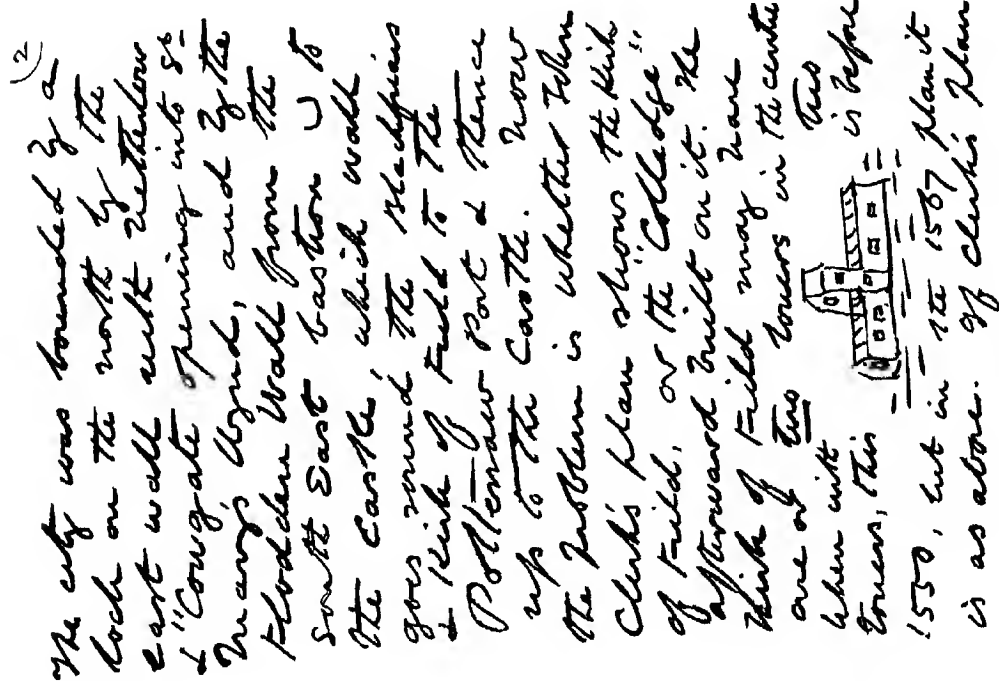 (2
The city was bounded by a
loch on the north by the
east wall with Netherbow
& "Cowgate opening into St
Mary's Wynd, and by the
Flodden Wall from the
South East bastion to
the Castle, which wall
goes round the Blackfriars
& Kirk of Field to the
Potterrow Port & thence
up to the Castle. Now
the problem is whether John
Clerk's plan shows the Kirk
of Field, or the "Colledge"
afterward built on it. The
Kirk of Field may have
one or two towers in the centre
When with two
towers, this is before
1550, but in the 1567 plan it
is as above. If Clerk's plan